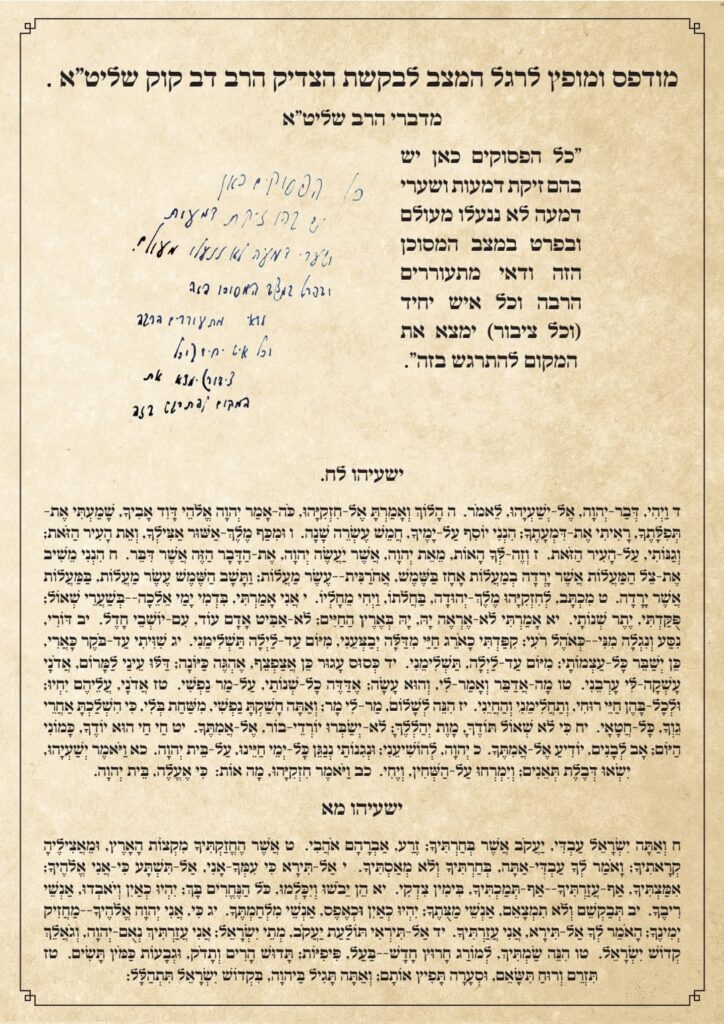 מודפס ומופץ לרגל המצב לבקשת הצדיק הרב דב קוק שליט"א .
מדברי הרב שליט"א
"כל הפסוקים כאן יש
בהם זיקת דמעות ושערי
דמעה לא ננעלו מעולם
ובפרט במצב המסוכן
הזה ודאי מתעוררים
הרבה וכל איש יחיד
(וכל ציבור) ימצא את
המקום להתרגש בזה".
כל הפסוקים כאן
יש בהן זיקת דמעות
ושערי דמעה לא ננעלו מעולם.
ובפרט במצב המסוכן הזה
ודאי מתעוררים הרבה
וכל איש יחיד (וכל
ציבור) ימצא את
המקום להתרגש בזה
ישעיהו לח.
ד וַיְהִי, דְּבַר-יְהוָה, אֶל-יְשַׁעְיָהוּ, לֵאמֹר. ה הָלוֹךְ וְאָמַרְתָּ אֶל-חִזְקִיָּהוּ, כֹּה-אָמַר יְהוָה אֱלֹהֵי דָּוִד אָבִיךָ, שָׁמַעְתִּי אֶת-
תְּפִלָּתֶךָ, רָאִיתִי אֶת-דִּמְעָתֶךָ; הִנְנִי יוֹסִף עַל-יָמֶיךָ, חֲמֵשׁ עֶשְׂרֵה שָׁנָה. ו וּמִכַּף מֶלֶךְ-אַשּׁוּר אַצִּילְךָ, וְאֵת הָעִיר הַזֹּאת;
וְגַנּוֹתִי, עַל-הָעִיר הַזֹּאת. ז וְזֶה-לְּךָ הָאוֹת, מֵאֵת יְהוָה, אֲשֶׁר יַעֲשֶׂה יְהוָה, אֶת-הַדָּבָר הַזֶּה אֲשֶׁר דִּבֵּר. ח הִנְנִי מֵשִׁיב
אֶת-צֵל הַמַּעֲלוֹת אֲשֶׁר יָרְדָה בְמַעֲלוֹת אָחָז בַּשֶּׁמֶשׁ, אֲחֹרַנִּית--עֶשֶׂר מַעֲלוֹת; וַתָּשָׁב הַשֶּׁמֶשׁ עֶשֶׂר מַעֲלוֹת, בַּמַּעֲלוֹת
אֲשֶׁר יָרָדָה. ט מִכְתָּב, לְחִזְקִיָּהוּ מֶלֶךְ-יְהוּדָה, בַּחֲלֹתוֹ, וַיְחִי מֵחָלְיוֹ. י אֲנִי אָמַרְתִּי, בִּדְמִי יָמַי אֵלֵכָה--בְּשַׁעֲרֵי שְׁאוֹל;
פֻּקַּדְתִּי, יֶתֶר שְׁנוֹתָי. יא אָמַרְתִּי לֹא-אֶרְאֶה יָהּ, יָהּ בְּאֶרֶץ הַחַיִּים; לֹא-אַבִּיט אָדָם עוֹד, עִם-יוֹשְׁבֵי חָדֶל. יב דּוֹרִי,
נִסַּע וְנִגְלָה מִנִּי--כְּאֹהֶל רֹעִי; קִפַּדְתִּי כָאֹרֵג חַיַּי מִדַּלָּה יְבַצְּעֵנִי, מִיּוֹם עַד-לַיְלָה תַּשְׁלִימֵנִי. יג שִׁוִּיתִי עַד-בֹּקֶר כָּאֲרִי,
כֵּן יְשַׁבֵּר כָּל-עַצְמוֹתָי; מִיּוֹם עַד-לַיְלָה, תַּשְׁלִימֵנִי. יד כְּסוּס עָגוּר כֵּן אֲצַפְצֵף, אֶהְגֶּה כַּיּוֹנָה; דַּלּוּ עֵינַי לַמָּרוֹם, אֲדֹנָי
עָשְׁקָה-לִּי עָרְבֵנִי. טו מָה-אֲדַבֵּר וְאָמַר-לִי, וְהוּא עָשָׂה; אֶדַּדֶּה כָל-שְׁנוֹתַי, עַל-מַר נַפְשִׁי. טז אֲדֹנָי, עֲלֵיהֶם יִחְיוּ;
וּלְכָל-בָּהֶן חַיֵּי רוּחִי, וְתַחֲלִימֵנִי וְהַחֲיֵנִי. יז הִנֵּה לְשָׁלוֹם, מַר-לִי מָר; וְאַתָּה חָשַׁקְתָּ נַפְשִׁי, מִשַּׁחַת בְּלִי, כִּי הִשְׁלַכְתָּ אַחֲרֵי
גֵוְךָ, כָּל-חֲטָאָי. יח כִּי לֹא שְׁאוֹל תּוֹדֶךָּ, מָוֶת יְהַלְלֶךָּ; לֹא-יְשַׂבְּרוּ יוֹרְדֵי-בוֹר, אֶל-אֲמִתֶּךָ. יט חַי חַי הוּא יוֹדֶךָ, כָּמוֹנִי
הַיּוֹם; אָב לְבָנִים, יוֹדִיעַ אֶל-אֲמִתֶּךָ. כ יְהוָה, לְהוֹשִׁיעֵנִי; וּנְגִנוֹתַי נְנַגֵּן כָּל-יְמֵי חַיֵּינוּ, עַל-בֵּית יְהוָה. כא וַיֹּאמֶר יְשַׁעְיָהוּ,
יִשְׂאוּ דְּבֶלֶת תְּאֵנִים; וְיִמְרְחוּ עַל-הַשְּׁחִין, וְיֶחִי. כב וַיֹּאמֶר חִזְקִיָּהוּ, מָה אוֹת: כִּי אֶעֱלֶה, בֵּית יְהוָה.
ישעיהו מא
ח וְאַתָּה יִשְׂרָאֵל עַבְדִּי, יַעֲקֹב אֲשֶׁר בְּחַרְתִּיךָ; זֶרַע, אַבְרָהָם אֹהֲבִי. ט אֲשֶׁר הֶחֱזַקְתִּיךָ מִקְצוֹת הָאָרֶץ, וּמֵאֲצִילֶיהָ
קְרָאתִיךָ; וָאֹמַר לְךָ עַבְדִּי-אַתָּה, בְּחַרְתִּיךָ וְלֹא מְאַסְתִּיךָ. י אַל-תִּירָא כִּי עִמְּךָ-אָנִי, אַל-תִּשְׁתָּע כִּי-אֲנִי אֱלֹהֶיךָ;
אִמַּצְתִּיךָ, אַף-עֲזַרְתִּיךָ--אַף-תְּמַכְתִּיךָ, בִּימִין צִדְקִי. יא הֵן יֵבֹשׁוּ וְיִכָּלְמוּ, כֹּל הַנֶּחֱרִים בָּךְ; יִהְיוּ כְאַיִן וְיֹאבְדוּ, אַנְשֵׁי
רִיבֶךָ. יב תְּבַקְשֵׁם וְלֹא תִמְצָאֵם, אַנְשֵׁי מַצֻּתֶךָ; יִהְיוּ כְאַיִן וּכְאֶפֶס, אַנְשֵׁי מִלְחַמְתֶּךָ. יג כִּי, אֲנִי יְהוָה אֱלֹהֶיךָ--מַחֲזִיק
יְמִינֶךָ; הָאֹמֵר לְךָ אַל-תִּירָא, אֲנִי עֲזַרְתִּיךָ. יד אַל-תִּירְאִי תּוֹלַעַת יַעֲקֹב, מְתֵי יִשְׂרָאֵל; אֲנִי עֲזַרְתִּיךְ נְאֻם-יְהוָה, וְגֹאֲלֵךְ
קְדוֹשׁ יִשְׂרָאֵל. טו הִנֵּה שַׂמְתִּיךְ, לְמוֹרַג חָרוּץ חָדָשׁ--בַּעַל, פִּיפִיּוֹת; תָּדוּשׁ הָרִים וְתָדֹק, וּגְבָעוֹת כַּמֹּץ תָּשִׂים. טז
תִּזְרֵם וְרוּחַ תִּשָּׂאֵם, וּסְעָרָה תָּפִיץ אוֹתָם; וְאַתָּה תָּגִיל בַּיהוָה, בִּקְדוֹשׁ יִשְׂרָאֵל תִּתְהַלָּל: